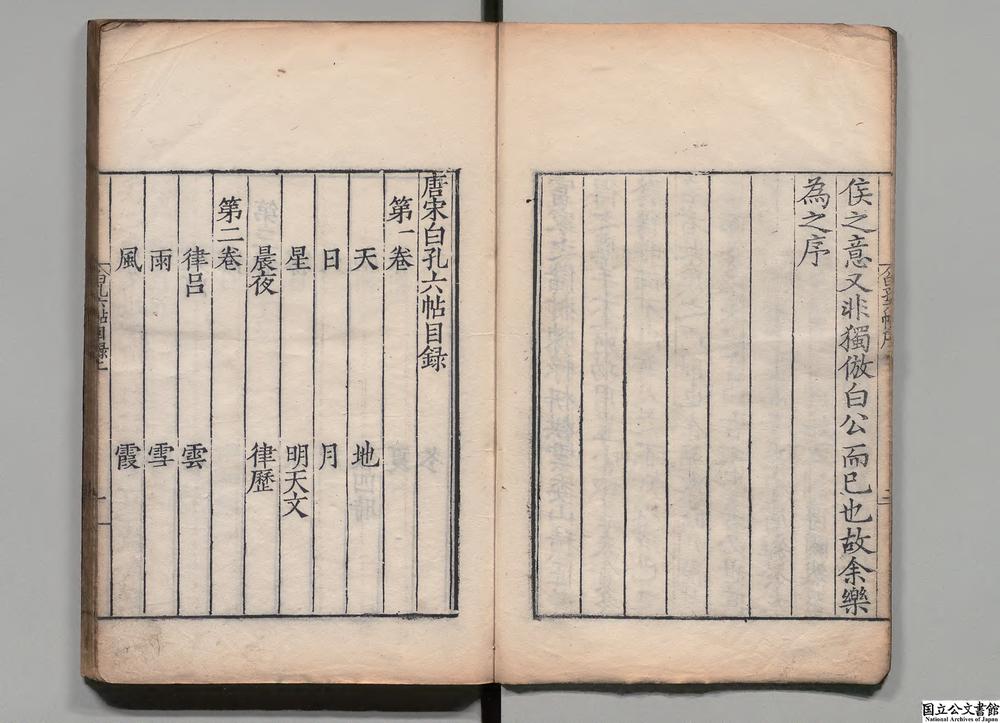 侯之意又非獨倣白公而已也故余樂
為之序
唐宋白孔六帖目録
第一卷
天 地
日 月
星 明天文
晨夜 律歷
第二卷
律呂 雲
雨 雪
風 霞
白孔六帖目録上 一
国立公文書館
National Archives of Japan